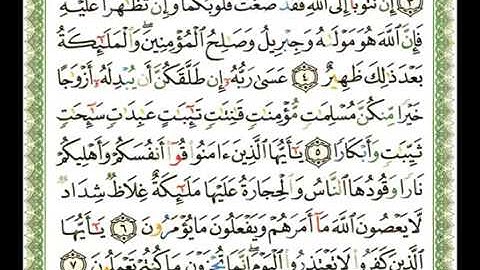 ٣ إِن تَتُوبَا إِلَى اللَّهِ فَقَدْ صَغَتْ قُلُوبُكُمَا وَإِن تَظَاهَرَا عَلَيْهِ
فَإِنَّ اللَّهَ هُوَ مَوْلَاهُ وَجِبْرِيلُ وَصَالِحُ الْمُؤْمِنِينَ وَالْمَلَائِكَةُ
بَعْدَ ذَلِكَ ظَهِيرٌ ٤ عَسَى رَبُّهُ إِن طَلَّقَكُنَّ أَن يُبْدِلَهُ أَزْوَاجًا
خَيْرًا مِّنكُنَّ مُسْلِمَاتٍ مُّؤْمِنَاتٍ قَانِتَاتٍ تَائِبَاتٍ عَابِدَاتٍ سَائِحَاتٍ
ثَيِّبَاتٍ وَأَبْكَارًا ٥ يَا أَيُّهَا الَّذِينَ ءَامَنُوا قُوا أَنفُسَكُمْ وَأَهْلِيكُمْ
نَارًا وَقُودُهَا النَّاسُ وَالْحِجَارَةُ عَلَيْهَا مَلَائِكَةٌ غِلَاظٌ شِدَادٌ
لَّا يَعْصُونَ اللَّهَ مَا أَمَرَهُمْ وَيَفْعَلُونَ مَا يُؤْمَرُونَ ٦ يَا أَيُّهَا
الَّذِينَ كَفَرُوا لَا تَعْتَذِرُوا الْيَوْمَ إِنَّمَا تُجْزَوْنَ مَا كُنتُمْ تَعْمَلُونَ ٧